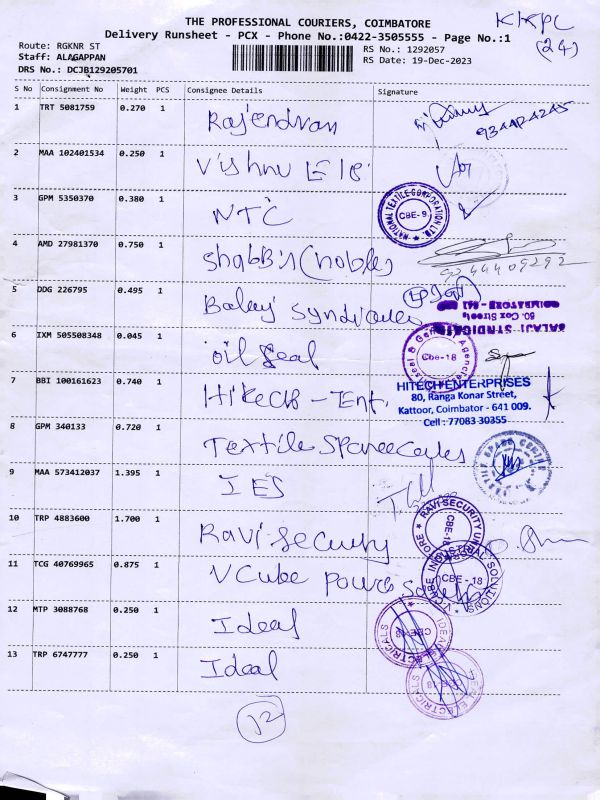 THE PROFESSIONAL COURIERS, COIMBATORE
KKPC
Delivery Runsheet - PCX - Phone No.:0422-3505555 - Page No.:1
(24)
Route: RGKNR ST
RS No.: 1292057
Staff: ALAGAPPAN
RS Date: 19-Dec-2023
DRS No.: DCJB129205701
S No Consignment No Weight PCS Consignee Details Signature
1 TRT 5081759 0.270 1 Rajendran
2 MAA 102401534 0.250 1 Vishnu Ele
3 GPM 5350370 0.380 1 NTC
NATIONAL TEXTILE CORPORATION LTD. CBE-9
4 AMD 27981370 0.750 1 Shabbis (noble)
9244409292
5 DDG 226795 0.495 1 Balaji Syndicates
BALAJI SYNDICATE
80, Cox Street,
COIMBATORE - 641
6 IXM 505508348 0.045 1 oil seal
Agencies Cbe-18
7 BBI 100161623 0.740 1 Hitech - Ent.
HITECH ENTERPRISES
80, Ranga Konar Street,
Kattoor, Coimbator - 641 009.
Cell : 77083 30355
8 GPM 340133 0.720 1 Textile
9 MAA 573412037 1.395 1 IES
10 TRP 4883600 1.700 1 Ravi Security
RAVI SECURITY CBE-18
11 TCG 40769965 0.875 1 V Cube power
V CUBE SOLUTIONS CBE - 18
12 MTP 3088768 0.250 1 Ideal
IDEAL ELECTRICALS CBE-18
13 TRP 6747777 0.250 1 Ideal
ELECTRICALS
12